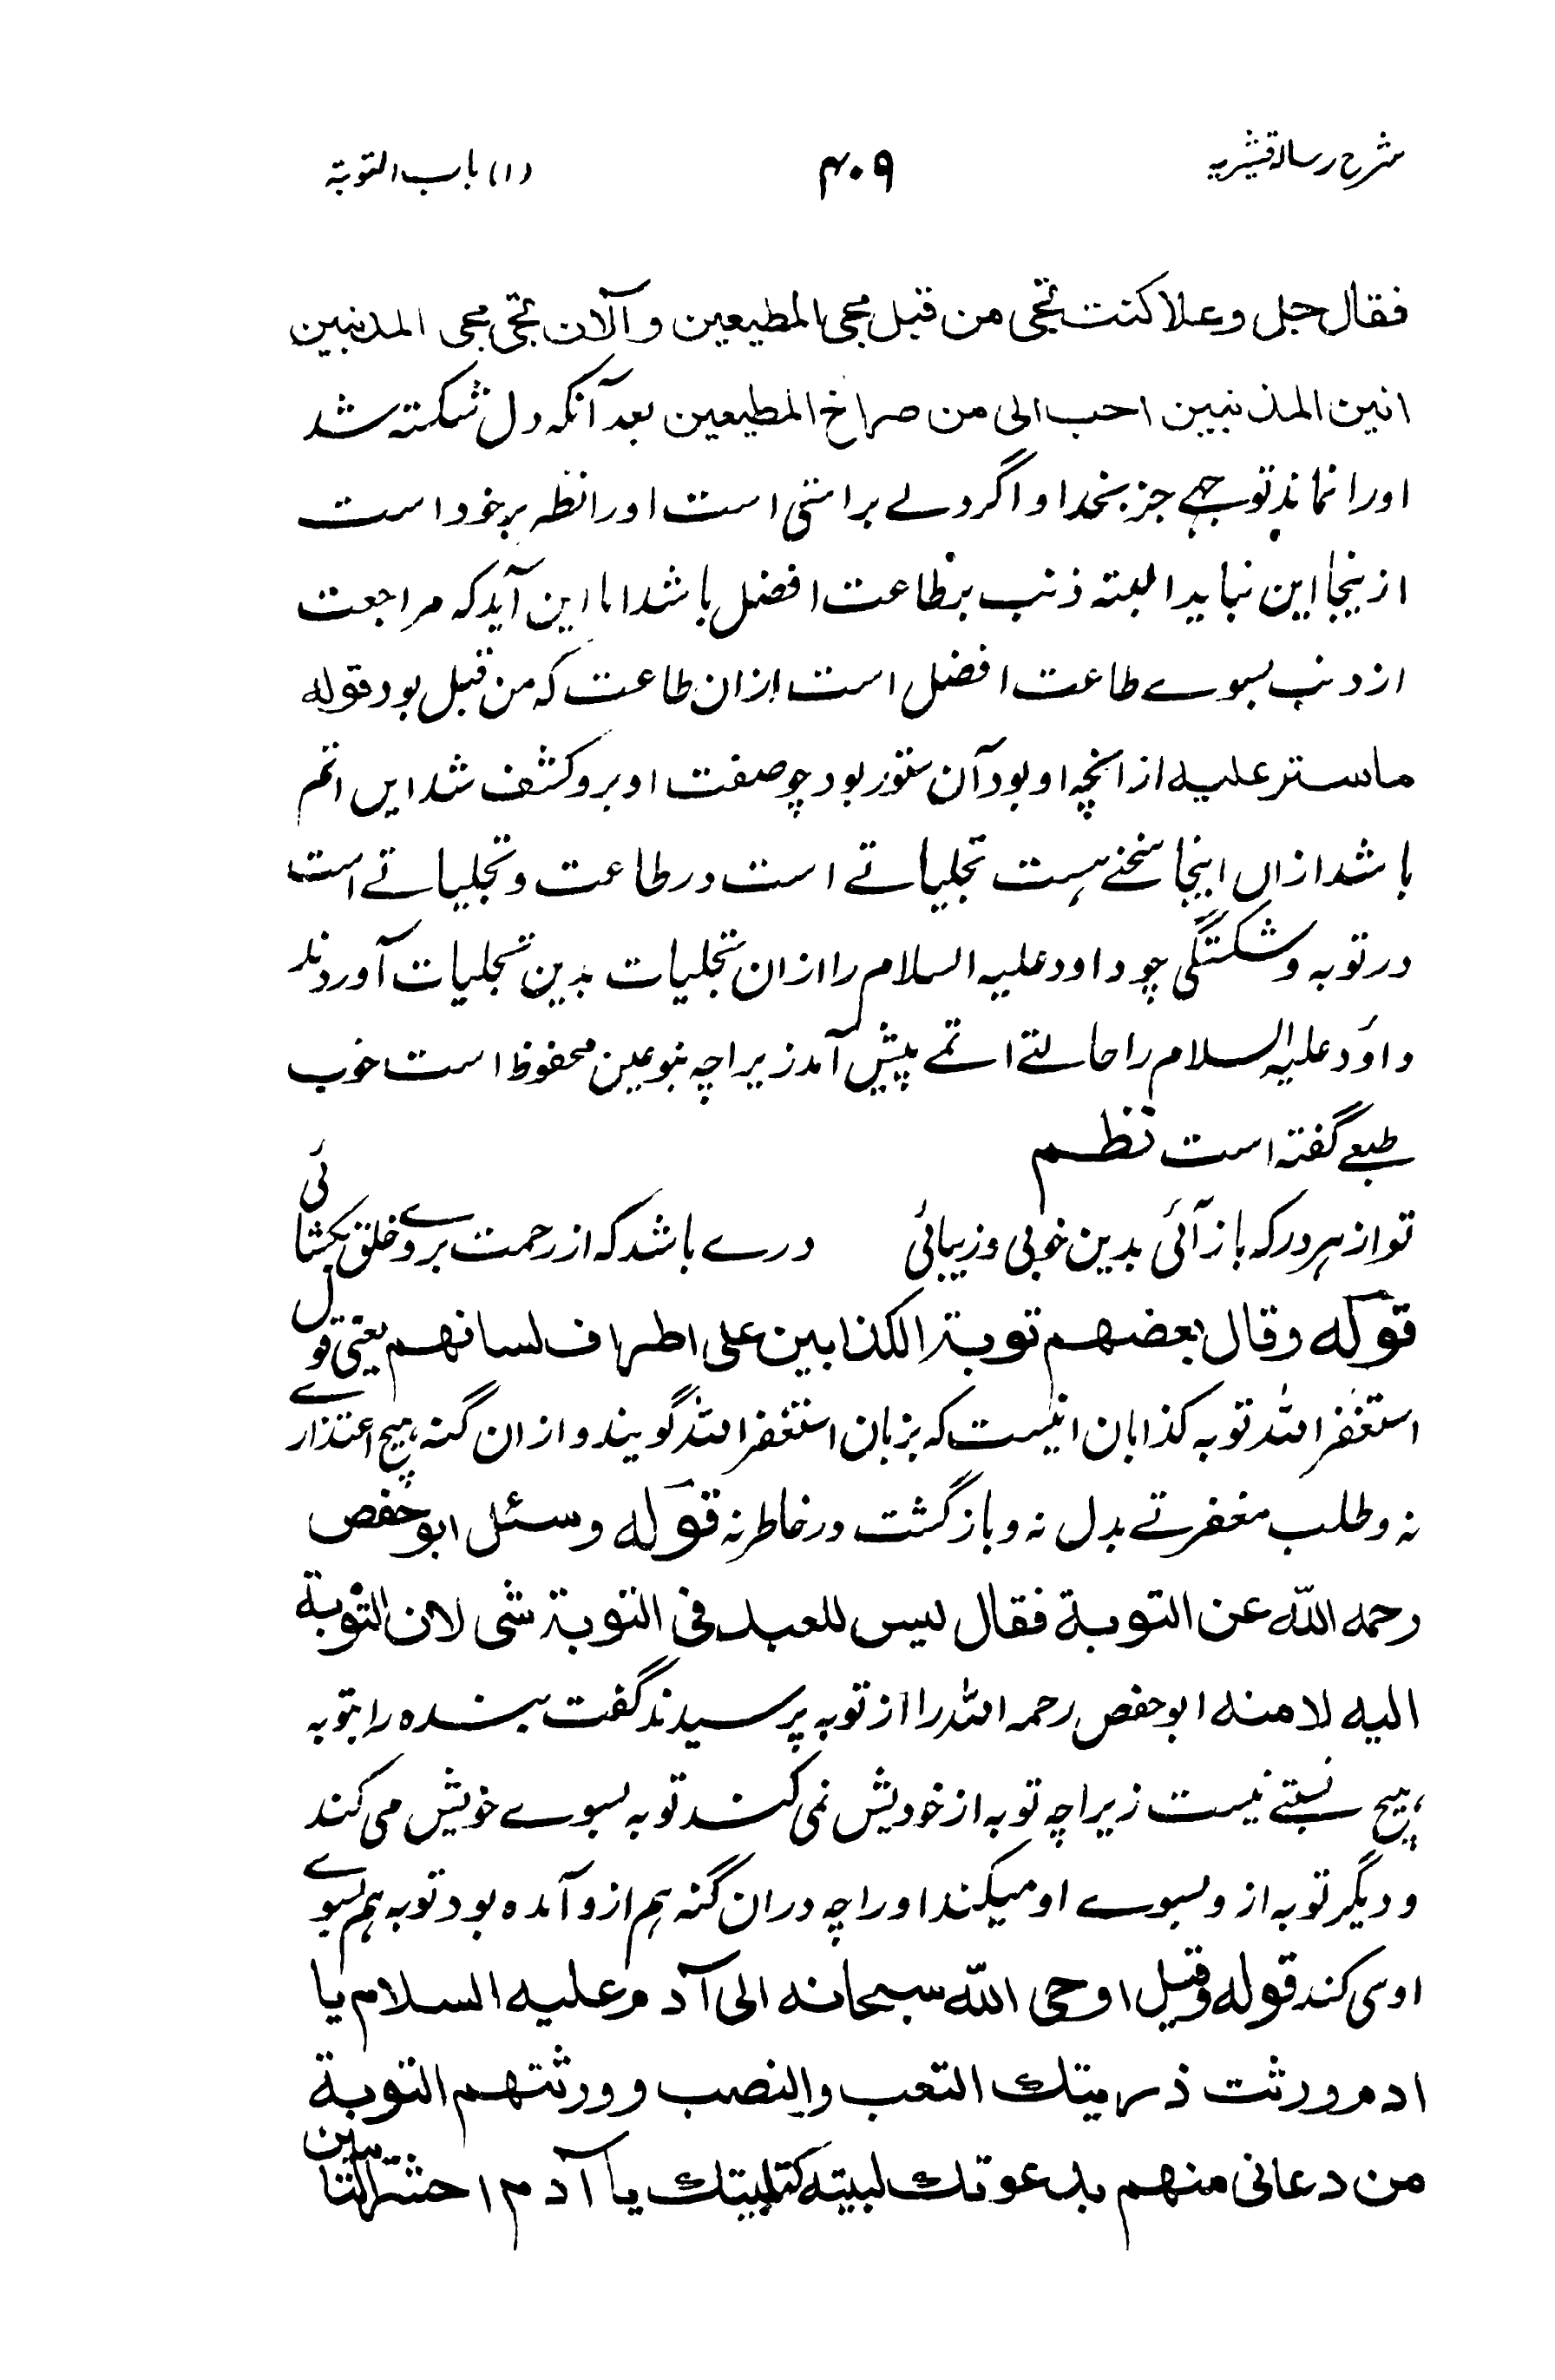 شرح رسالہ قشیریہ ۴۰۹ (۱) باب التوبۃ
فقال جل وعلا کنت تجی من قبل مجی المطیعین و آلان تجی مجی المذنبین
انین المذنبین احب الی من صراخ المطیعین بعد آنکہ دل شکستہ شد
اورا نماند توجہے جز بخدا و اگر دلے براستی است اورا نظر برخود است
ازینجا این نباید البتہ ذنب بر طاعت افضل باشد اما این آید کہ مراجعت
از ذنب بسوے طاعت افضل است ازان طاعت کہ من قبل بود قولہ
ماستر علیہ از انچہ او بود آن ستور بود چو صفت او برو کشف شد ایں اتم
باشد ازاں اینجا سخنے ہست تجلیاتے است در طاعت و تجلیاتے است
در توبہ و شکستگی چو داود علیہ السلام را ازان تجلیات بدین تجلیات آوردند
داؤد علیہ السلام را حالتے اتمے پیش آمد زیراچہ بنوعین محفوظ است خوب
طبعے گفتہ است نظم
تو از ہر در کہ باز آئی بدین خوبی و زیبائی درے باشد کہ از رحمت بروے خلق بکشائی
قولہ وقال بعضہم توبۃ الکذابین علی اطراف لسانہم یعنی قول
استغفر اللہ توبہ کذابان اینست کہ بزبان استغفر اللہ گویند و ازان گنہ ہیچ اعتذارے
نہ و طلب مغفرتے بدل نہ و بازگشت در خاطر نہ قولہ وسئل ابوحفص
رحمہ اللہ عن التوبة فقال لیس للعبد فی التوبۃ شی لان التوبة
الیہ لا منہ ابوحفص رحمہ اللہ را از توبہ پرسیدند گفت بندہ را بتوبہ
ہیچ نسبتے نیست زیراچہ توبہ از خودیش نمی کند توبہ بسوے خویش می کند
و دیگر توبہ از و بسوے او میکند اوراچہ دران گنہ ہم ازو آمدہ بود توبہ ہم بسوے
او می کند قولہ وقیل اوحی اللہ سبحانہ الی آدم علیہ السلام یا
ادم ورثت ذریتک التعب والنصب وورثتہم التوبة
من دعانی منہم بدعوتک لبیتہ کتلبیتک یا آدم احشر التائبین